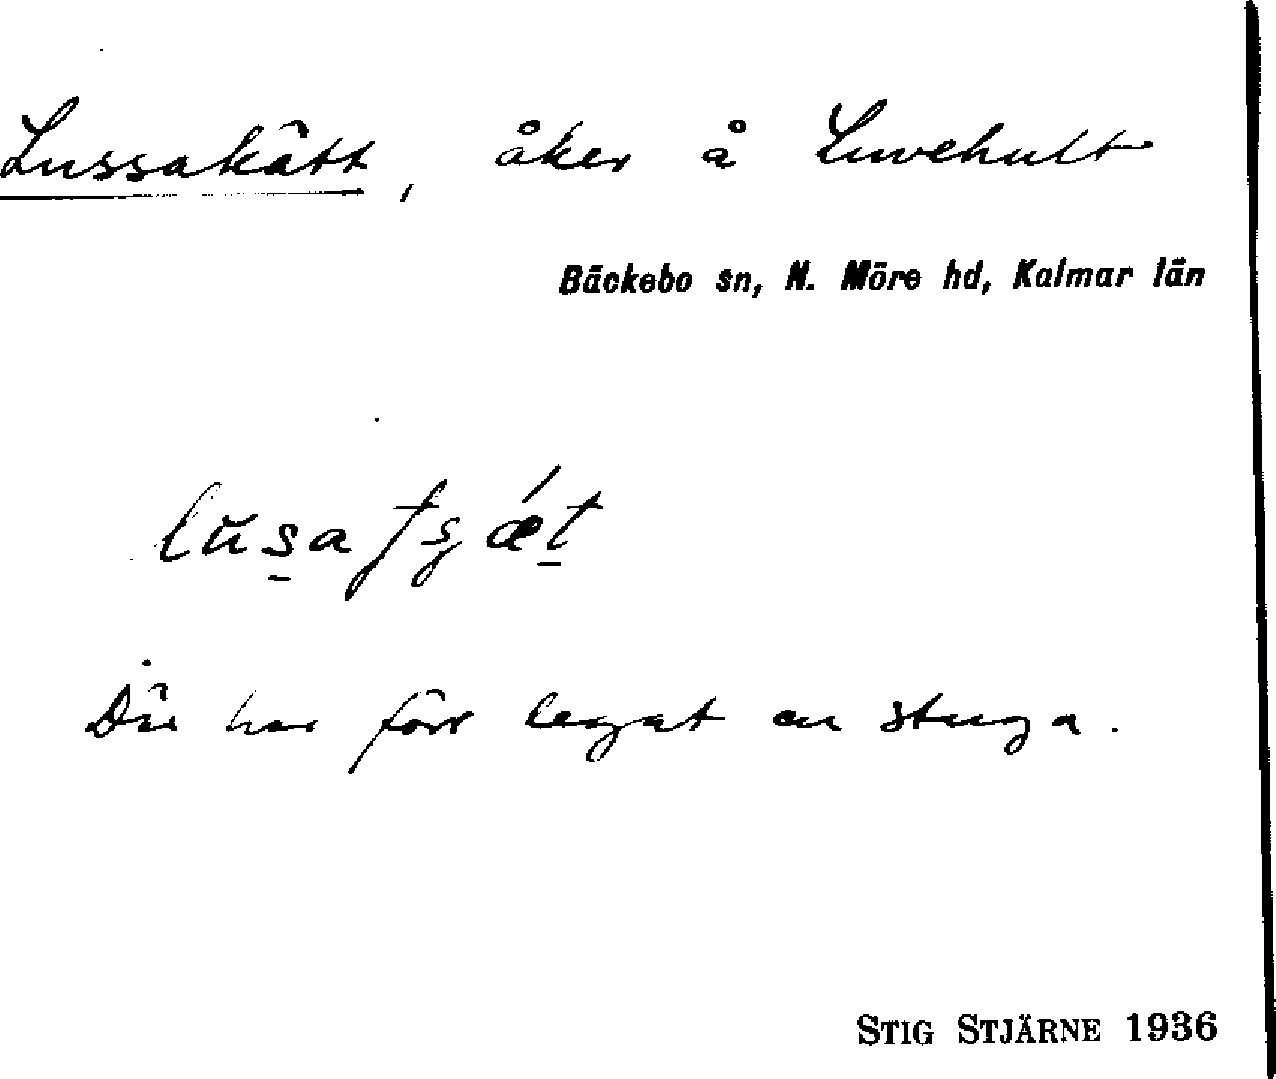 Lussakätt, åker å Luvehult
Bäckebo sn, N. Möre hd, Kalmar län
Där har förr legat en stuga.
STIG STJÄRNE 1936